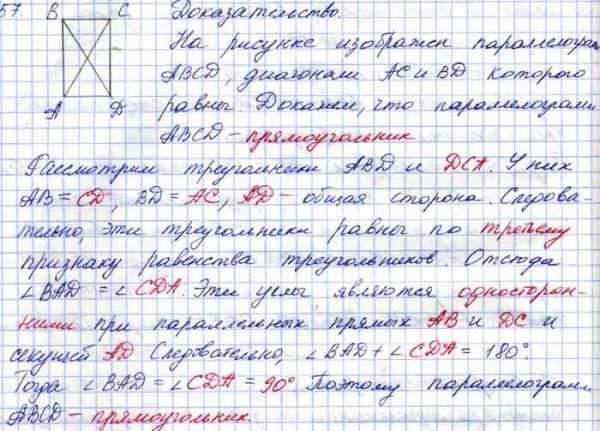 57. B C Доказательство.
На рисунке изображен параллелограмм
ABCD, диагонали AC и BD которого
A D равны. Докажем, что параллелограмм
ABCD – прямоугольник
Рассмотрим треугольники ABD и DCA. У них
AB = CD, BD = AC, AD – общая сторона. Следова-
тельно, эти треугольники равны по третьему
признаку равенства треугольников. Отсюда
∠BAD = ∠CDA. Эти углы являются односторон-
ними при параллельных прямых AB и DC и
секущей AD. Следовательно, ∠BAD + ∠CDA = 180°.
Тогда ∠BAD = ∠CDA = 90°. Поэтому параллелограмм
ABCD – прямоугольник.